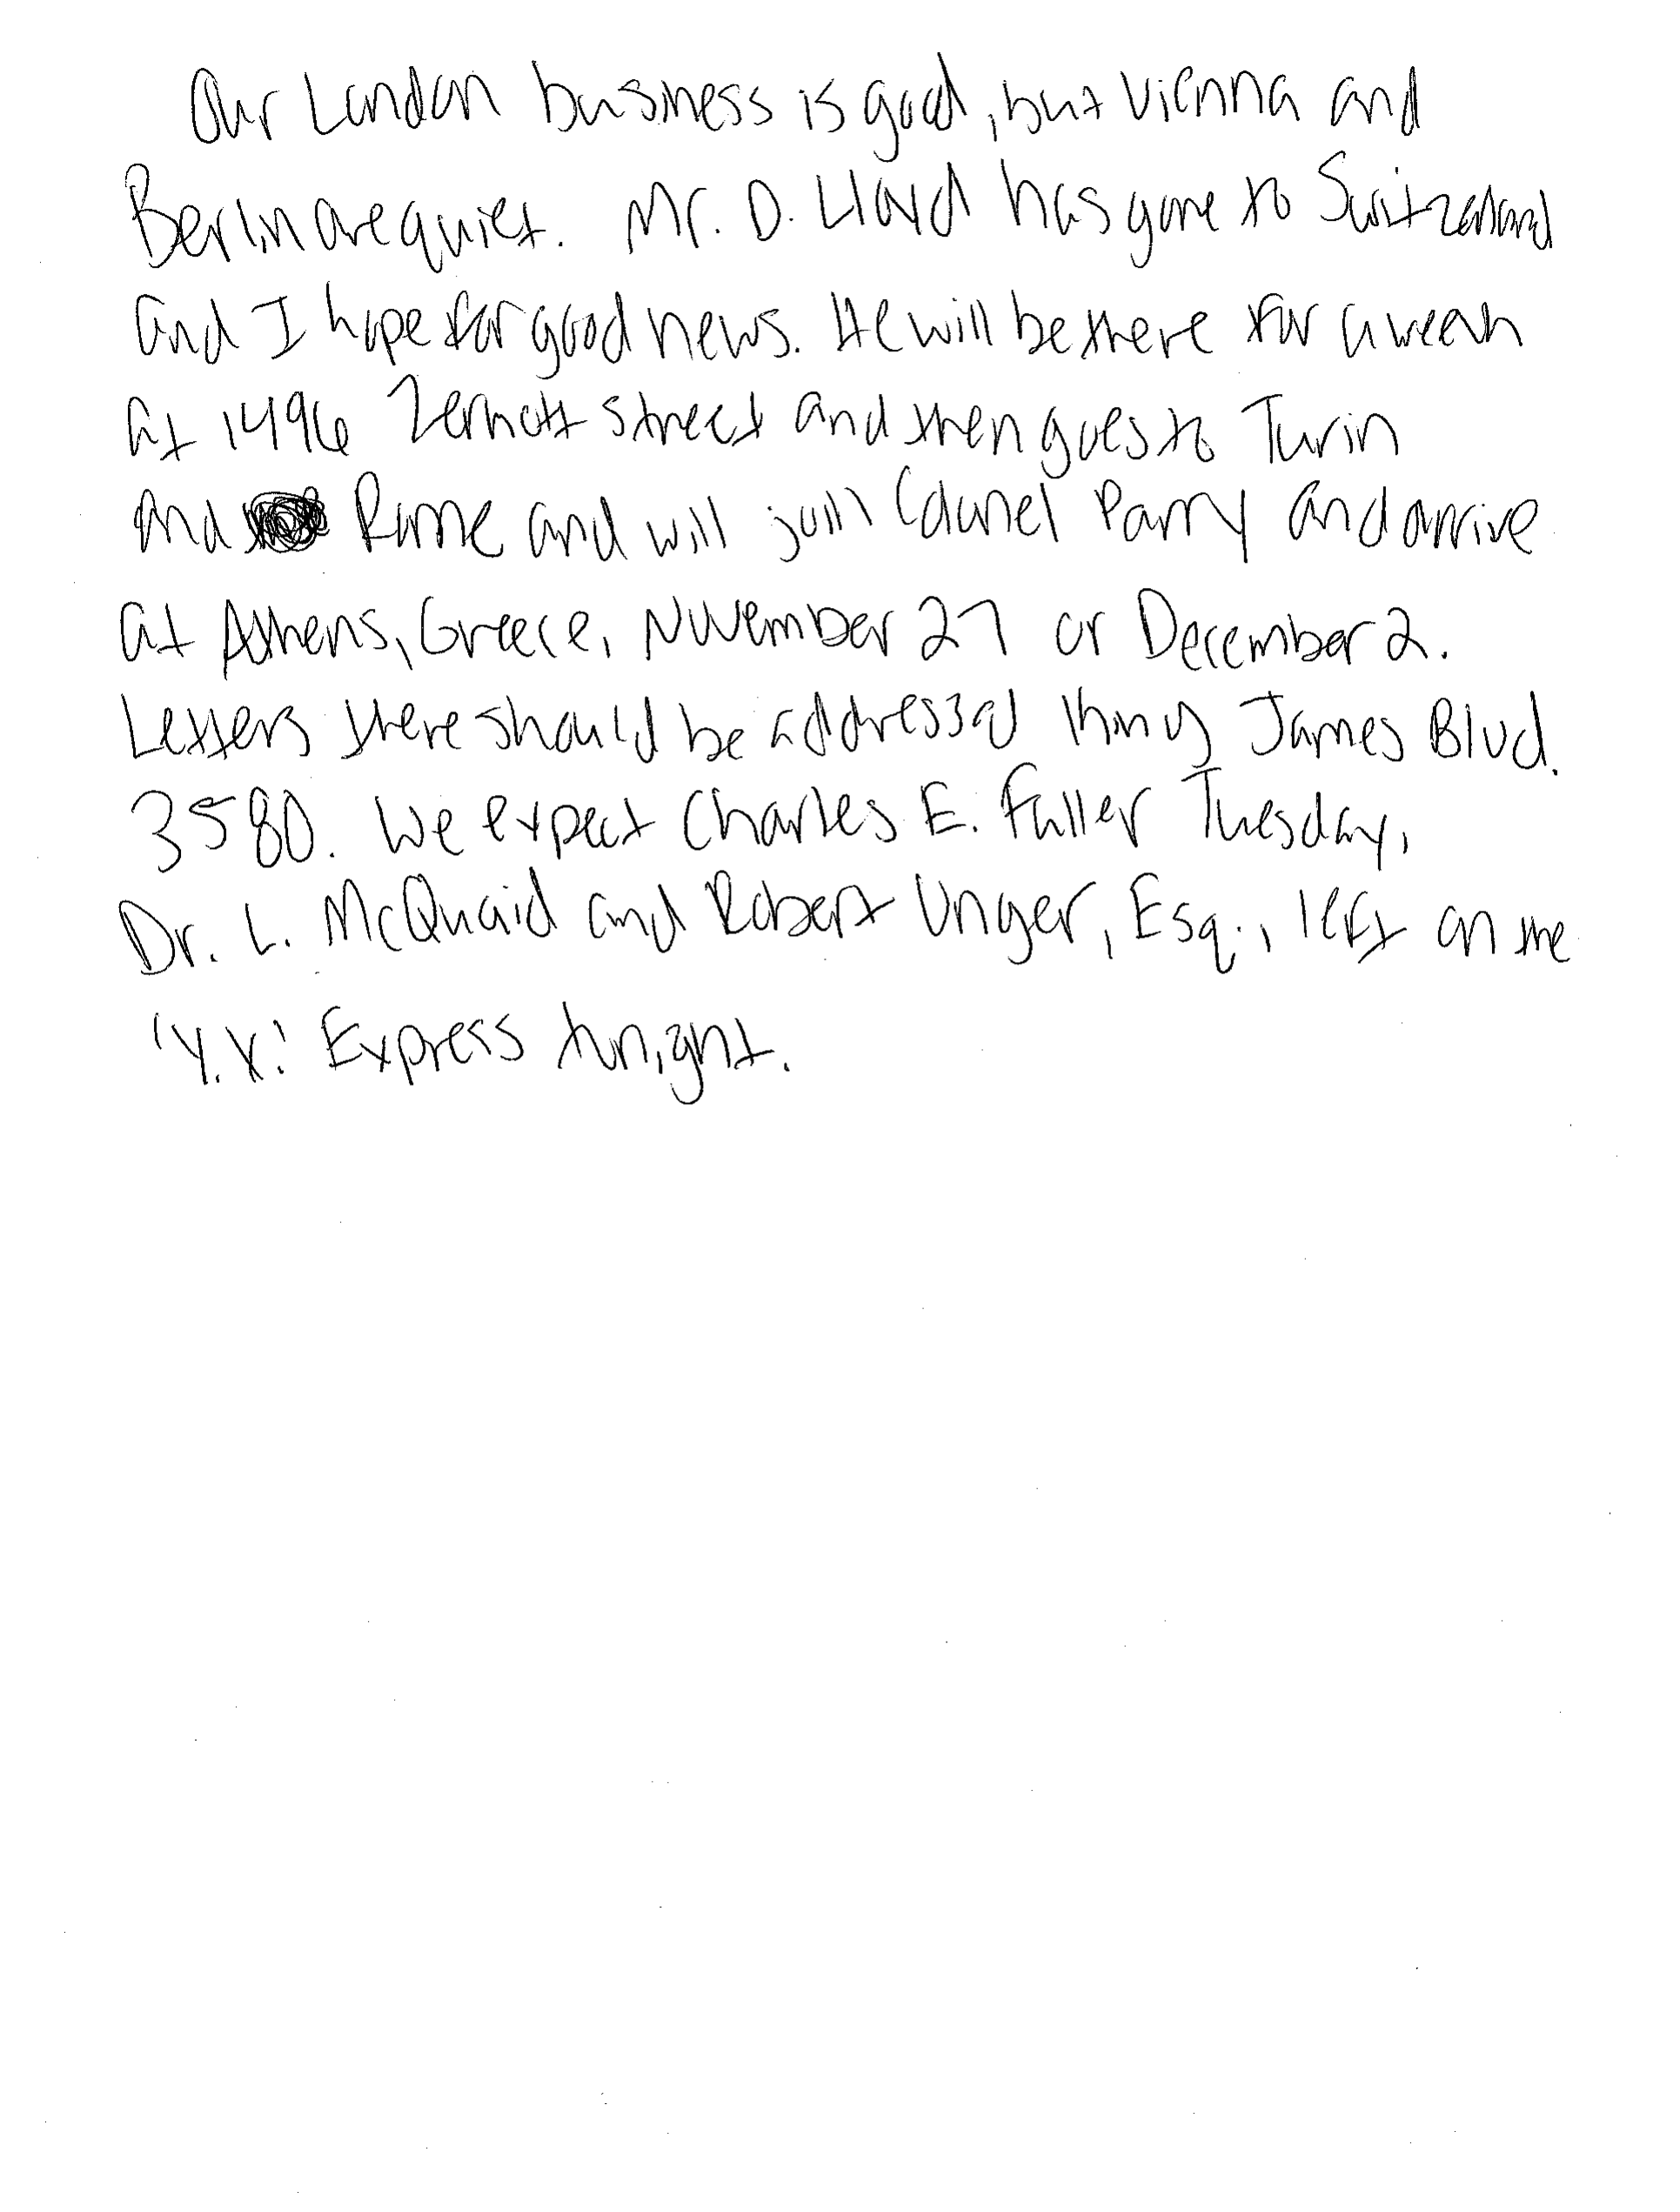 Our London business is good, but Vienna and
Berlin are quiet. Mr. D. Lloyd has gone to Switzerland
and I hope for good news. He will be there for a week
at 1496 Zermott street and then goes to Turin
and Rome and will join Colonel Parry and arrive
at Athens, Greece, November 27 or December 2.
Letters there should be addressed King James Blvd.
3580. We expect Charles E. Fuller Tuesday,
Dr. L. McQuaid and Robert Unger, Esq., left on the
'Y.X.' Express tonight.